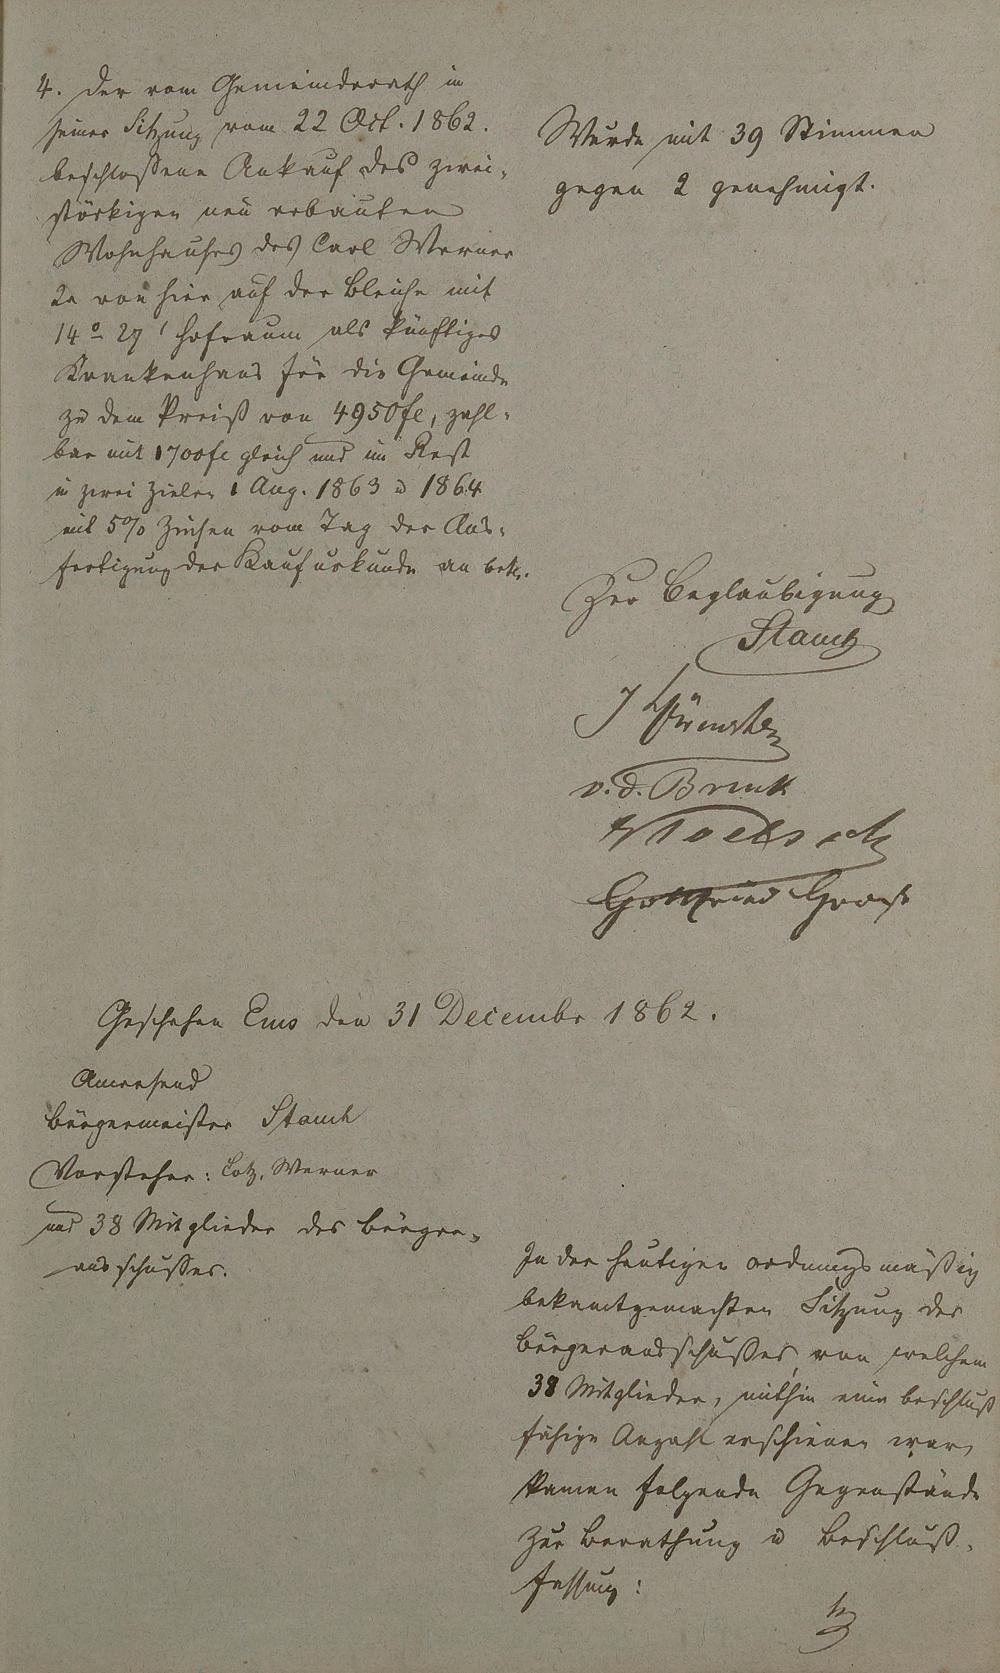 4. Der vom Gemeinderath in
seiner Sitzung vom 22 Oct. 1862.
beschlossene Ankauf des zwei-
stöckigen neu erbauten
Wohnhauses des Carl Werner
2r von hier auf der Bleiche mit
14° 27' Hofraum als künftiges
Krankenhaus für die Gemeinde
zu dem Preiß von 4950 fl, zahl-
bar mit 1700 fl gleich und im Rest
in zwei Zielen 1 Aug. 1863 u 1864
mit 5% Zinsen vom Tag der Aus-
fertigung der Kaufurkunde an betr.
Wurde mit 39 Stimmen
gegen 2 genehmigt.
Zur Beglaubigung
Stauch
v. d. Brink
Gottfried
Geschehen Ems den 31 Decembr 1862.
Anwesend
Bürgermeister Stauch
Vorsteher: Lotz, Werner
und 38 Mitglieder des Bürger-
ausschusses.
In der heutigen ordnungsmäßig
bekanntgemachten Sitzung des
Bürgerausschußes, von welchem
38 Mitglieder, mithin eine beschluß
fähige Anzahl erschienen war,
kamen folgende Gegenstände
zur Berathung u Beschluß-
fassung: